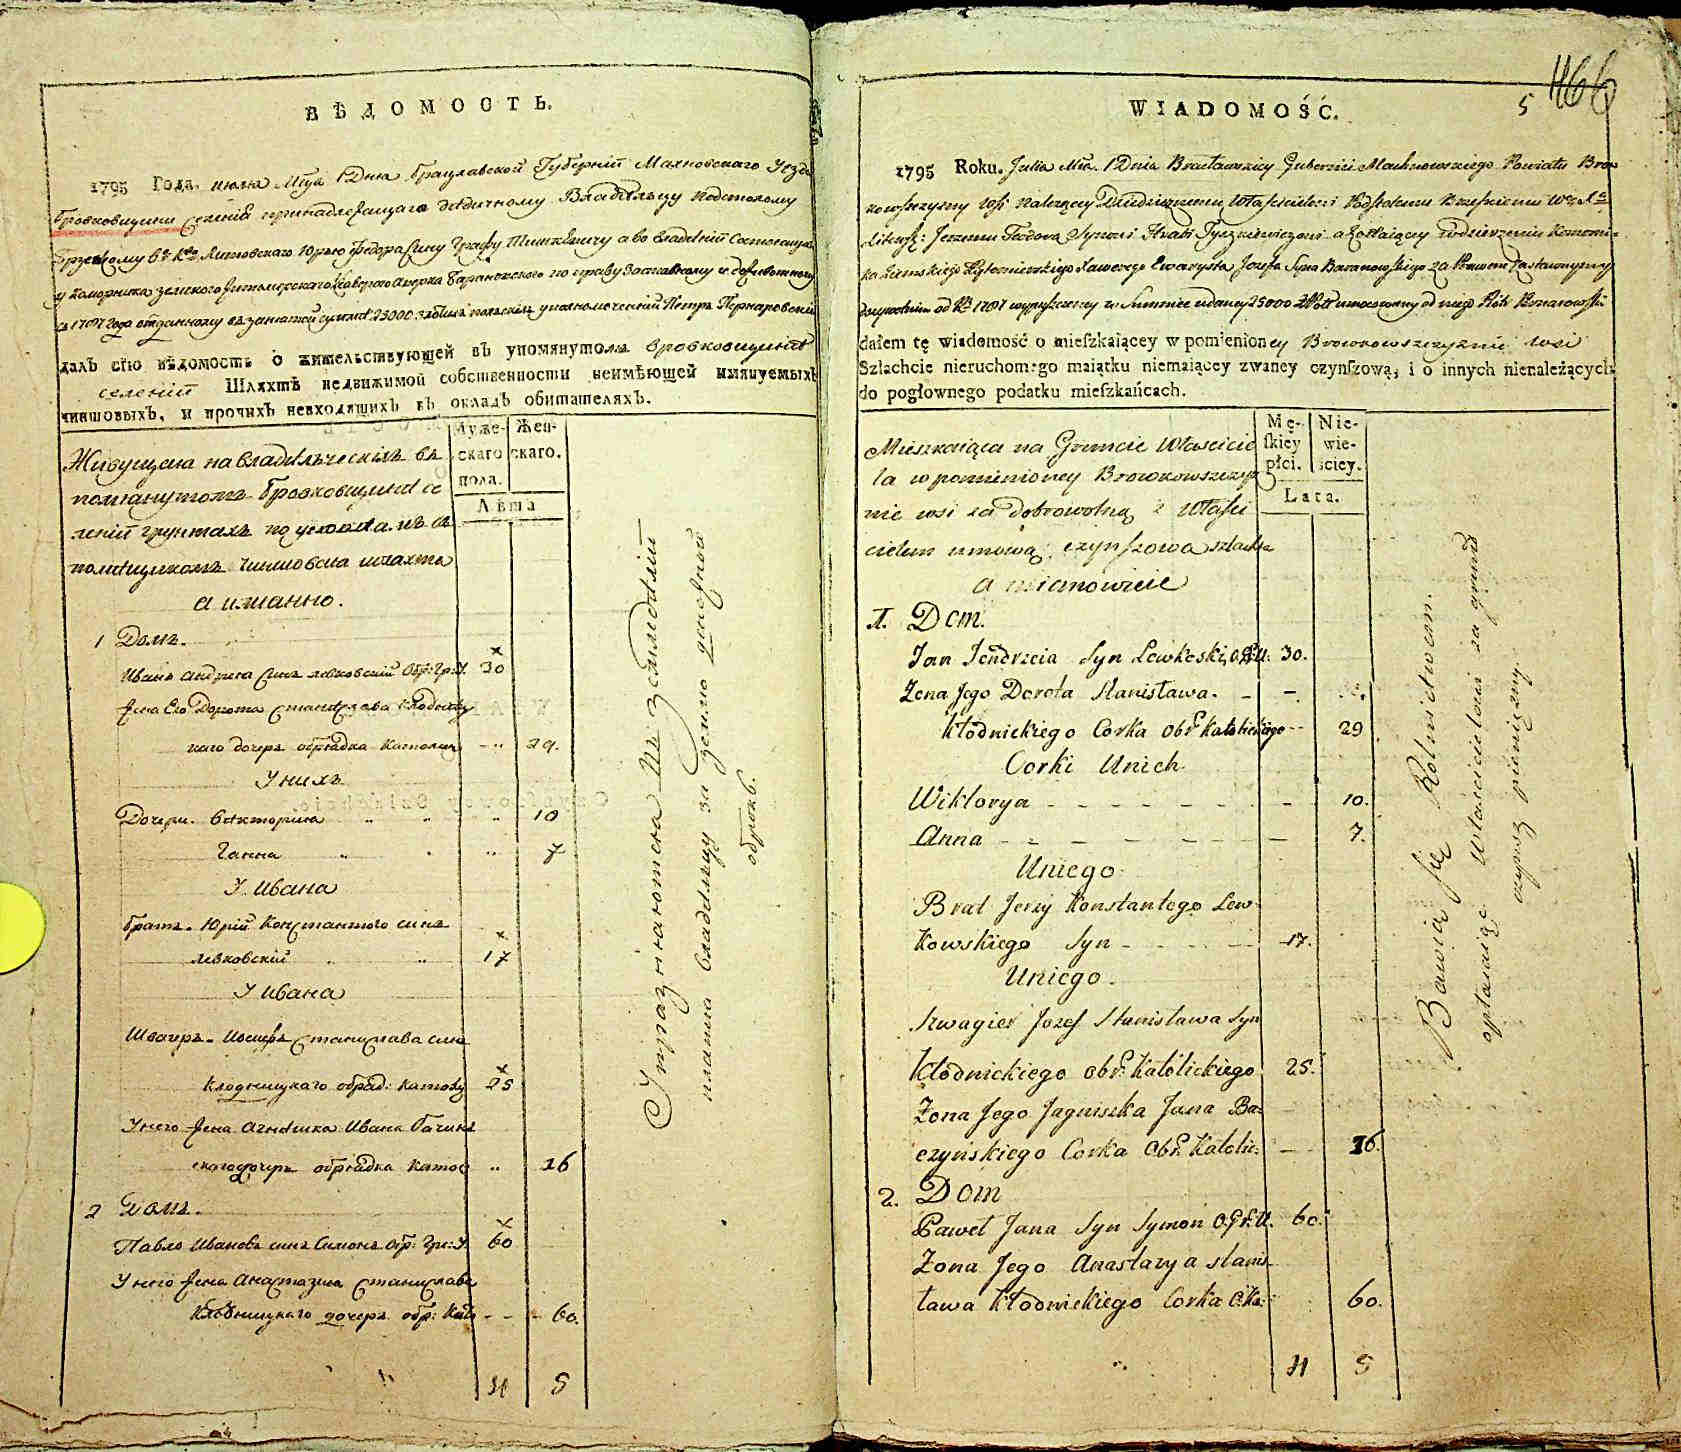 ВѢДОМОСТЬ.
1795 Года. июля Мца 1 Дня Брацлавской Губернїи Махновскаго Уезда
Бровковщини селенїя принадлежащаго дѣдичному Владѣльцу подстолому
Литовскаго Юрию Федора сину Графу Тишкѣвичу а во владѣнїи состоящаго
коморника земского Житомирского Баранов­ского по праву заставному
1787 года отданному въ суммѣ 25000 злотихъ полскихъ уполномоченнїй Петръ
далъ сїю вѣдомость о жительствующей въ упомянутомъ Бровковщинѣ
селенїи Шляхтѣ недвижимой собственности неимѣющей имянуемыхъ
чиншовыхъ, и прочихъ невходящихъ въ окладъ обитателяхъ.
Муже- Жен-
скаго скаго.
пола.
Лѣта
Живущая на владѣльческихъ въ
помянутомъ Бровковщинѣ се
ленїи грунтахъ по условїям въ съ
помѣщикомъ чиншовая шляхта
а имянно.
1 Домъ.
Иванъ андрея синъ левковский Обр: Гр: У. 30
жена Его Дорота станислава клодниц
каго дочерь обрядка католиц - " 29.
У нихъ
Дочери. вѣктория " " " 10
Ганна " " " 7
У ивана
братъ. Юрїй Константого синъ
левковскїй " " 17
У ивана
Швагеръ. Иосифъ станислава синъ
клодницкаго обряд: католиц 25
У него жена Агнѣшка Ивана бачин
скаго дочерь обрядка катол " 26
2 Домъ.
Павло Ивановъ синъ Симонъ обр: Гр: У. 60
У него жена Анастазия станислава
клодницкаго дочерь обр: Като - - - 60.
4 5
Упразнаются въ земледѣлїи
платя владѣльцу за землю чиножной
оброкъ.
WIADOMOŚĆ.
5 466
1795 Roku. Julia Mca. 1 Dnia Bracławskiey Gubernii Machnowskiego Powiatu Bro-
kowszczyzny Wsi należącey Dziedzicznemu Właścicielowi Podstolemu Brzeskiemu
Litewsk: Jerzemu Fiedora Synowi Hrabi Tyszkiewiczowi a zostaiącey w dzierzeniu Komorni-
ka Ziemskiego Żytomierskiego Xawerego Ewarysta Jozefa Syna Baranowskiego za Prawem Zastawnym
od Rku 1787 w Summie 25000 Złott od niego Piotr
dałem tę wiadomość o mieſzkaiącey w pomienioney Browkowszczyznie wsi
Szlachcie nieruchomego maiątku niemaiącey zwaney czynſzową, i o innych nienależących
do pogłownego podatku mieſzkańcach.
Mę- Nie-
ſkiey wie-
płci. ściey.
Lata.
Mieszkaiąca na Gruncie Właścicie
la w pomienioney Browkowszczyz
nie wsi za dobrowolną z właści
cielem umową czynszowa szlachta
a mianowicie
1. Dom.
Jan Jendrzeia Syn Lewkoski, O.Gr.U. 30.
Zona Jego Dorota Stanisława. - -
Kłodnickiego Corka obr. katolickiego - - 29
Corki Unich
Wiktorya - - - - - - - - 10.
Anna - - - - - - - 7.
Uniego
Brat Jerzy Konstantego Lew-
kowskiego Syn - - - - - 17.
Uniego.
Szwagier Jozef Stanisława Syn
Kłodnickiego obr. Katolickiego 25.
Zona Jego Jagniszka Jana Ba-
czynskiego Corka Obr. Katolic: - 26.
2. Dom
Paweł Jana Syn Symon O.Gr.U. 60.
Zona Jego Anastazya stanis-
ława Kłodnickiego Corka O.Ka: 60.
4 5
Bawią się Rolnictwem.
opłasaiąc Właścicielowi za grunt
czynsz pieniężny.